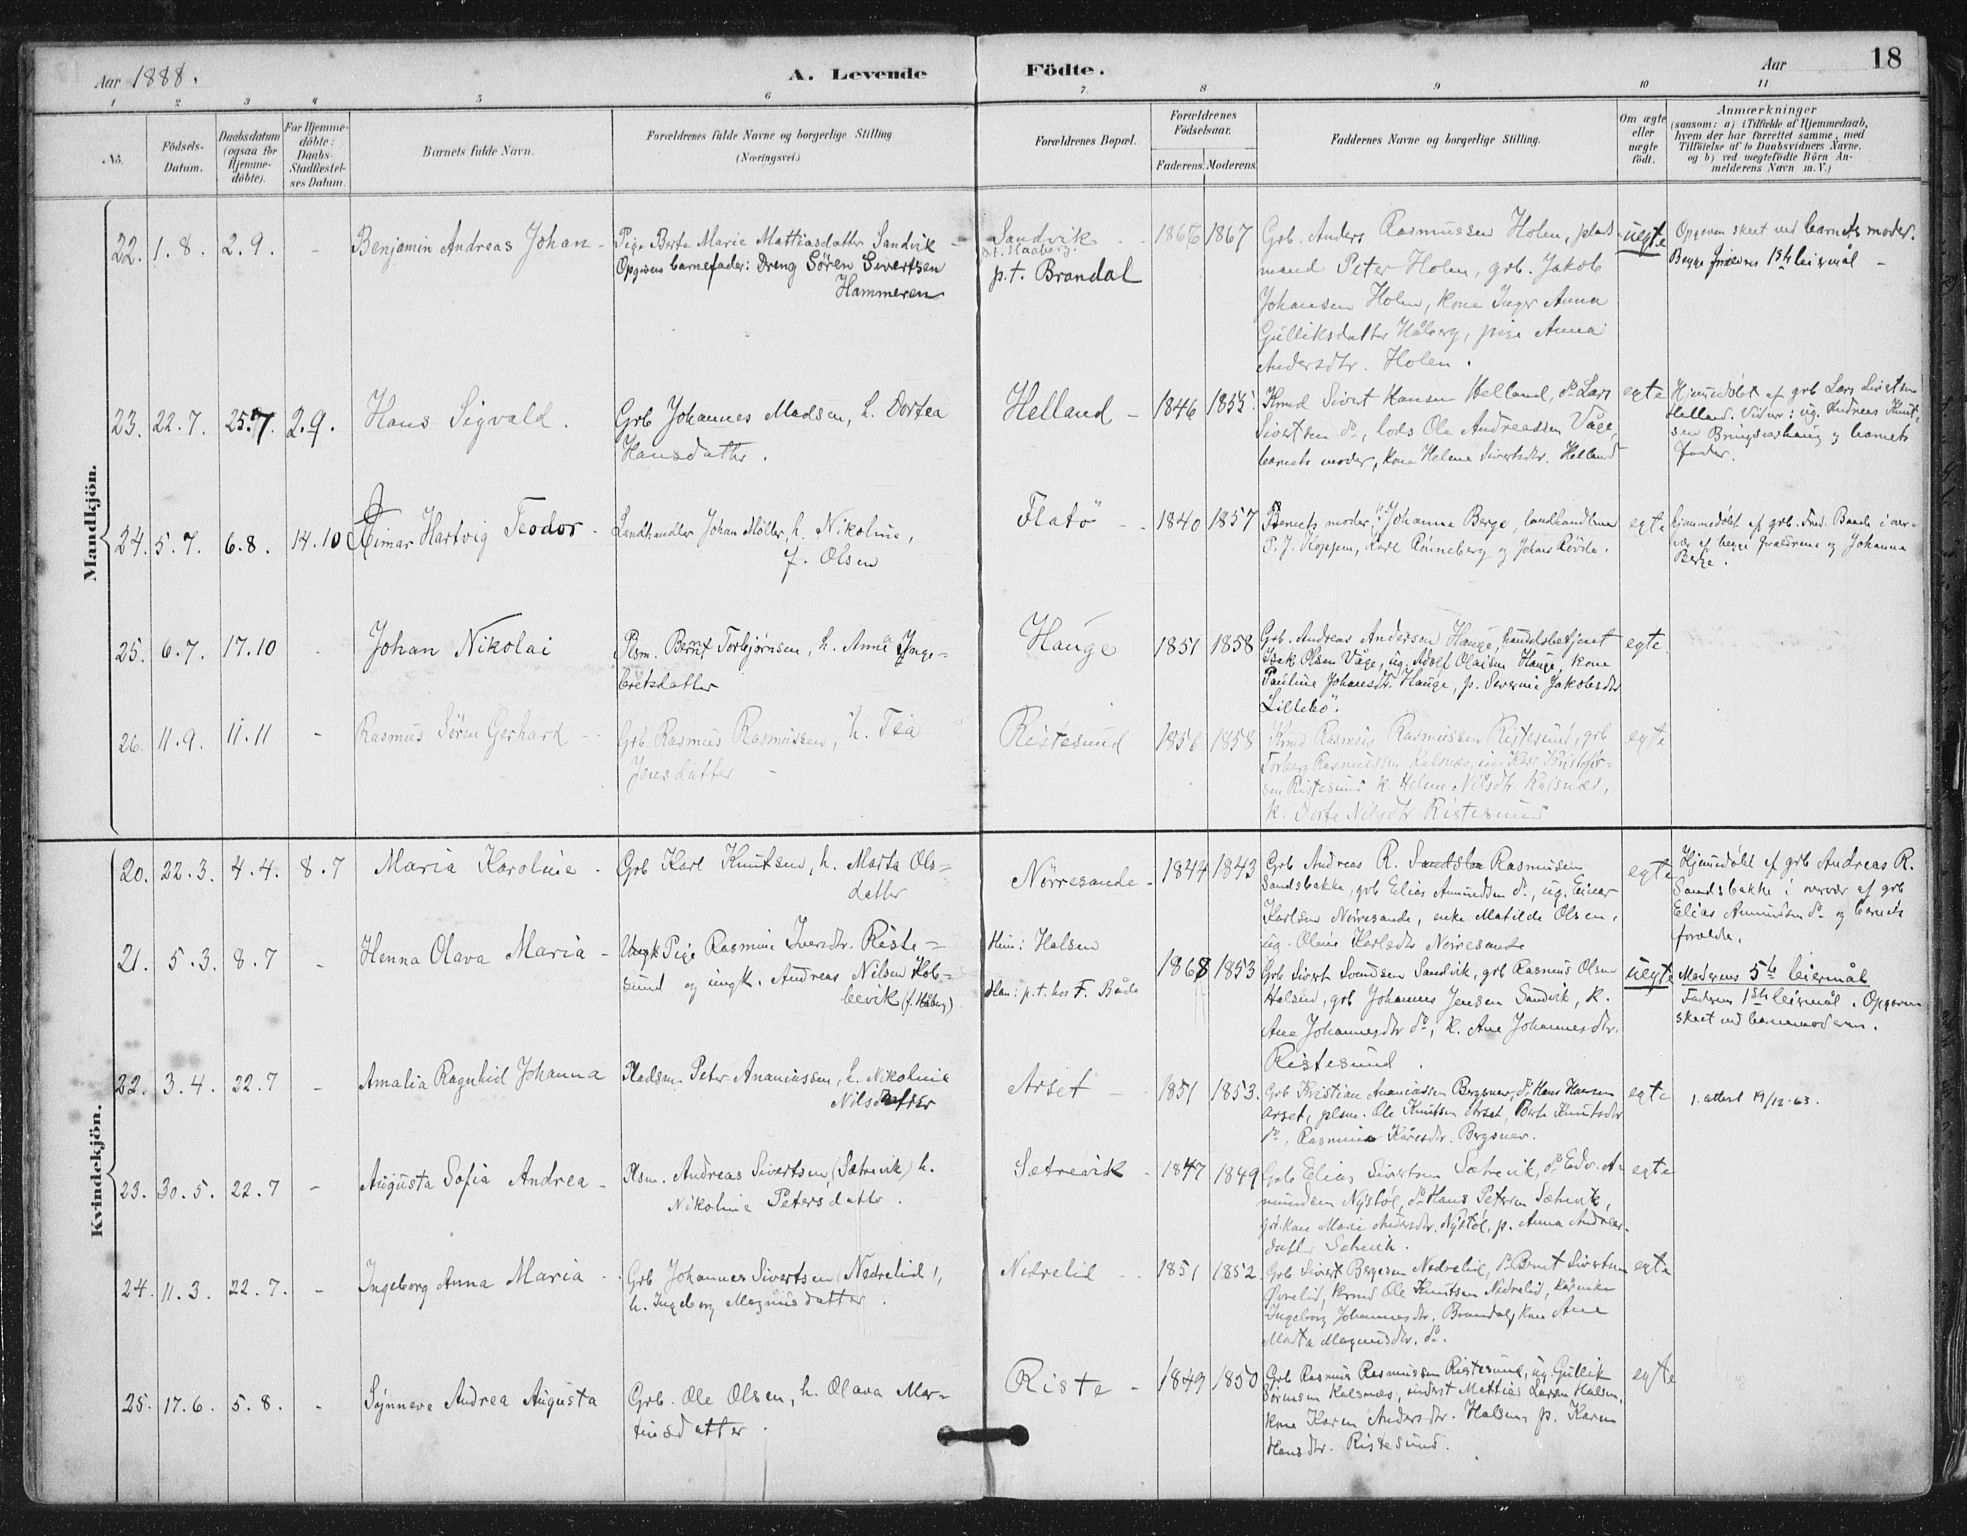 Aar 1888.
A. Levende Födte.
Aar
18
1 2 3 4 5 6 7. 8 9 10 11
No.
Födsels-Datum.
Daabsdatum (ogsaa for Hjemme-döbte).
For Hjemme-döbte: Daabs-Stadfæstel-ses Datum.
Barnets fulde Navn.
Forældrenes fulde Navne og borgerlige Stilling (Næringsvei.)
Forældrenes Bopæl.
Forældrenes Födselsaar.
Faderens. Moderens.
Faddernes Navne og borgerlige Stilling.
Om ægte eller uægte födt.
Anmærkninger (saasom: a) i Tilfælde af Hjemmedaab, hvem der har forrettet samme, med Tilföielse af to Daabsvidners Navne. og b) ved uægtefödte Börn An-melderens Navn m. V.)
Mandkjön.
22. 1.8. 2.9. - Benjamin Andreas Johan -
Pige Berte Marie Mattiasdatter Sandvik -
Opgiven barnefader: Dreng Sören Sivertsen
Hammeren
Sandvik
p.t. Brandal
1866 1867
Grb. Anders Rasmussen Holen, plads-
mand Peter Holen, grb. Jakob
Johansen Holen, kone Inger Anna
Gulliksdatter Håberg, pige Anna
Andersdtr. Holen.
uegte
Opgaven skeet ved barnets moder.
Begge forældres 1ste leiermål -
23. 22.7. 25.7. 2.9. Hans Sigvald.
Grb Johannes Madsen, h. Dortea
Hansdatter.
Helland - 1846 1855.
Krmd Sivert Hansen Helland, do Lars
Sivertsen do, lods Ole Andreassen Våge,
barnets moder, kone Helene Sivertsdtr. Helland
egte
Hjemmedøbt af grb Lars Sivertsen
Helland. Vidner: ug. Andreas Knut-
sen Bringsvorhaug og barnets
fader.
24. 5.7. 6.8. 14.10 Hartvig Teodor -
Landhandler Johan Møller, h. Nikoline,
f. Olsen
Flatö - 1840 1857
Barnets moder, Johanna Berge, landhandlerne
P. J. Hoppen, Karl Rønneberg og Johan Røvde.
egte
hjemmedøbt af grb. Fred. Baade i over-
vær af begge forældrene og Johanna
Berge.
25. 6.7. 17.10 Johan Nikolai
Plsm. Bernt Torbjørnsen, h. Anne Inge-
bretsdatter
Hauge 1851 1858
Grb. Andreas Andersen Hauge, handelsbetjent
Isak Olsen Våge, ug. Adolf Olaisen Hauge, kone
Pauline Johansdtr. Hauge, p. Severine Jakobsdtr
Lillebö.
egte.
26. 11.9. 11.11 - Rasmus Sören Gerhard -
Grb Rasmus Rasmussen, h. Tea
Jensdatter -
Ristesund 1856 1858
Krmd Rasmus Rasmussen Ristesund, grb
Torberg Rasmussen Kalsnæs, ug. Kristofer-
sen Ristesund k. Helene Nilsdtr. Kalsnæs,
k. Dorte Nilsdtr Ristesund
egte
Kvindekjön.
20. 22.3. 4.4. 8.7 Maria Karoline -
Grb Karl Knutsen, h. Marta Ols-
datter
Nörresande - 1844 1843
Grb Andreas R. Rasmussen
Sandsbakke, grb Elias Amundsen do, ug. Einar
Karlsen Nörresande, enke Matilde Olsen,
ug. Oline Karlsdtr Nörresande
egte
Hjemmedøbt af grb Andreas R.
Sandsbakke i overvær af grb
Elias Amundsen do og barnets
forældre.
21. 5.3. 8.7 - Henna Olava Maria -
Pige Rasmine Iversdtr. Riste-
sund og ungk. Andreas Nilsen Kob-
bevik (f. Håberg)
Hun: Halsen
Han: p.t. hos F. Både
1868 1853
Grb Sivert Svendsen Sandvik, grb Rasmus Olsen
Halsen, grb Johannes Jensen Sandvik, k.
Ane Johannesdtr do, k. Ane Johannesdtr.
Ristesund.
uegte
Moderens 5te leiermål
Faderens 1ste leiermål. Opgaven
skeet ved barnemoderen.
22. 3.4. 22.7 - Amalia Ragnhild Johanna
Pladsm. Peter Ananiassen, h. Nikoline
Nilsdatter
Årset - 1851 1853.
Grb Kristian Ananiassen Bergsnev, do Hans Hansen
Årset, plsm. Ole Knutsen Årset, Berte Knutsdtr
do, Rasmine Kåresdtr. Bergsnev.
egte
1. attest 19/12-63.
23. 30.5. 22.7 - Augusta Sofia Andrea -
Plsm. Andreas Sivertsen (Sætrevik) h.
Nikoline Petersdatter.
Sætrevik - 1847 1849
Grb Elias Sivertsen Sætrevik, do Edv. A-
mundsen Nystöl, do Hans Petersen Sætrevik,
grd.kone Marie Andersdtr. Nystöl, p. Anna Andreas-
datter Sætrevik.
egte
24. 11.3. 22.7. - Ingeborg Anna Maria -
Grb Johannes Sivertsen (Nedrelid),
h. Ingeborg Magnusdatter.
Nedrelid - 1851 1852.
Grb Sivert Bergesen Nedrelid, do Bernt Sivertsen
Øvrelid, krmd Ole Knutsen Nedrelid, kårenke
Ingeborg Johannesdtr. Brandal, kone Ane
Marta Magnusdtr. do.
egte
25. 17.6. 5.8. - Synneve Andrea Augusta
Grb. Ole Olsen, h. Olava Mar-
tinsdatter.
Riste - 1849 1850
Grb Rasmus Rasmussen Ristesund, ug. Gullik
Sørensen Kalsnæs, inderst Mattias Larsen Halsen,
kone Karen Andersdtr. Halsen, p. Karen
Hansdtr. Ristesund.
egte